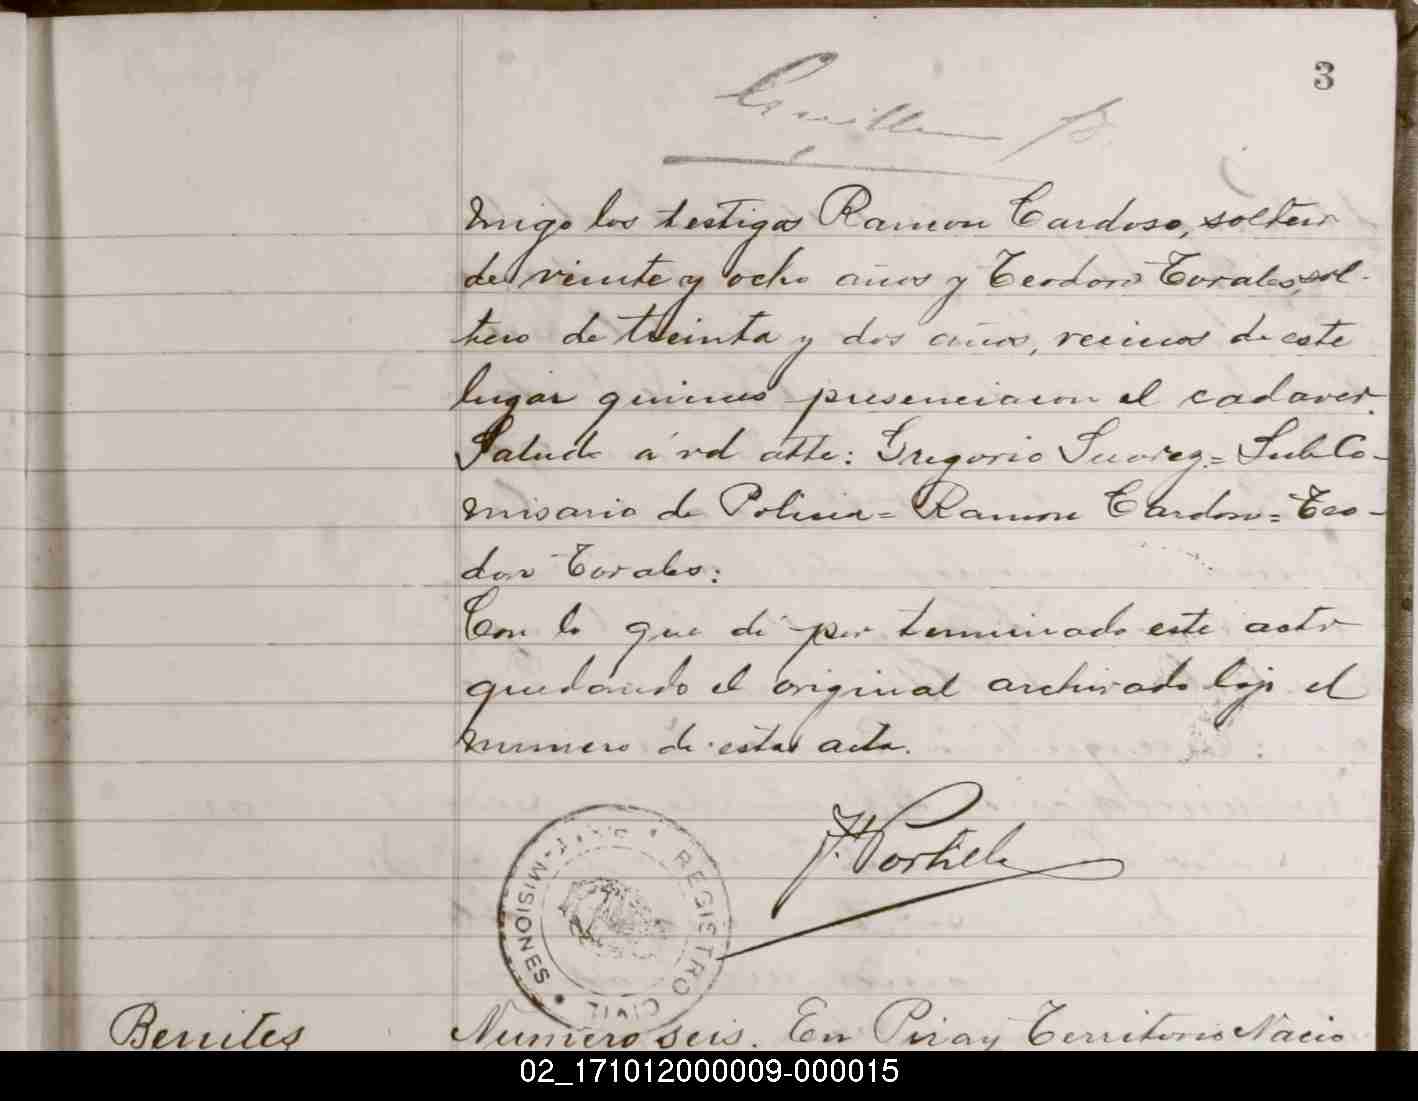 3
migo los testigos Ramon Cardoso, soltero
de veinte y ocho años y Teodoro Torales, sol-
tero de treinta y dos años, vecinos de este
lugar quienes presenciaron el cadaver.
Saludo á vd atte: Gregorio Suarez = Sub Co-
misario de Policia = Ramon Cardoso = Teo-
doro Torales:
Con lo que di por terminado este acto
quedando el original archivado bajo el
numero de esta acta.
Portillo
REGISTRO CIVIL
MISIONES
Benites
Numero seis. En Piray Territorio Nacio
02_171012000009-000015